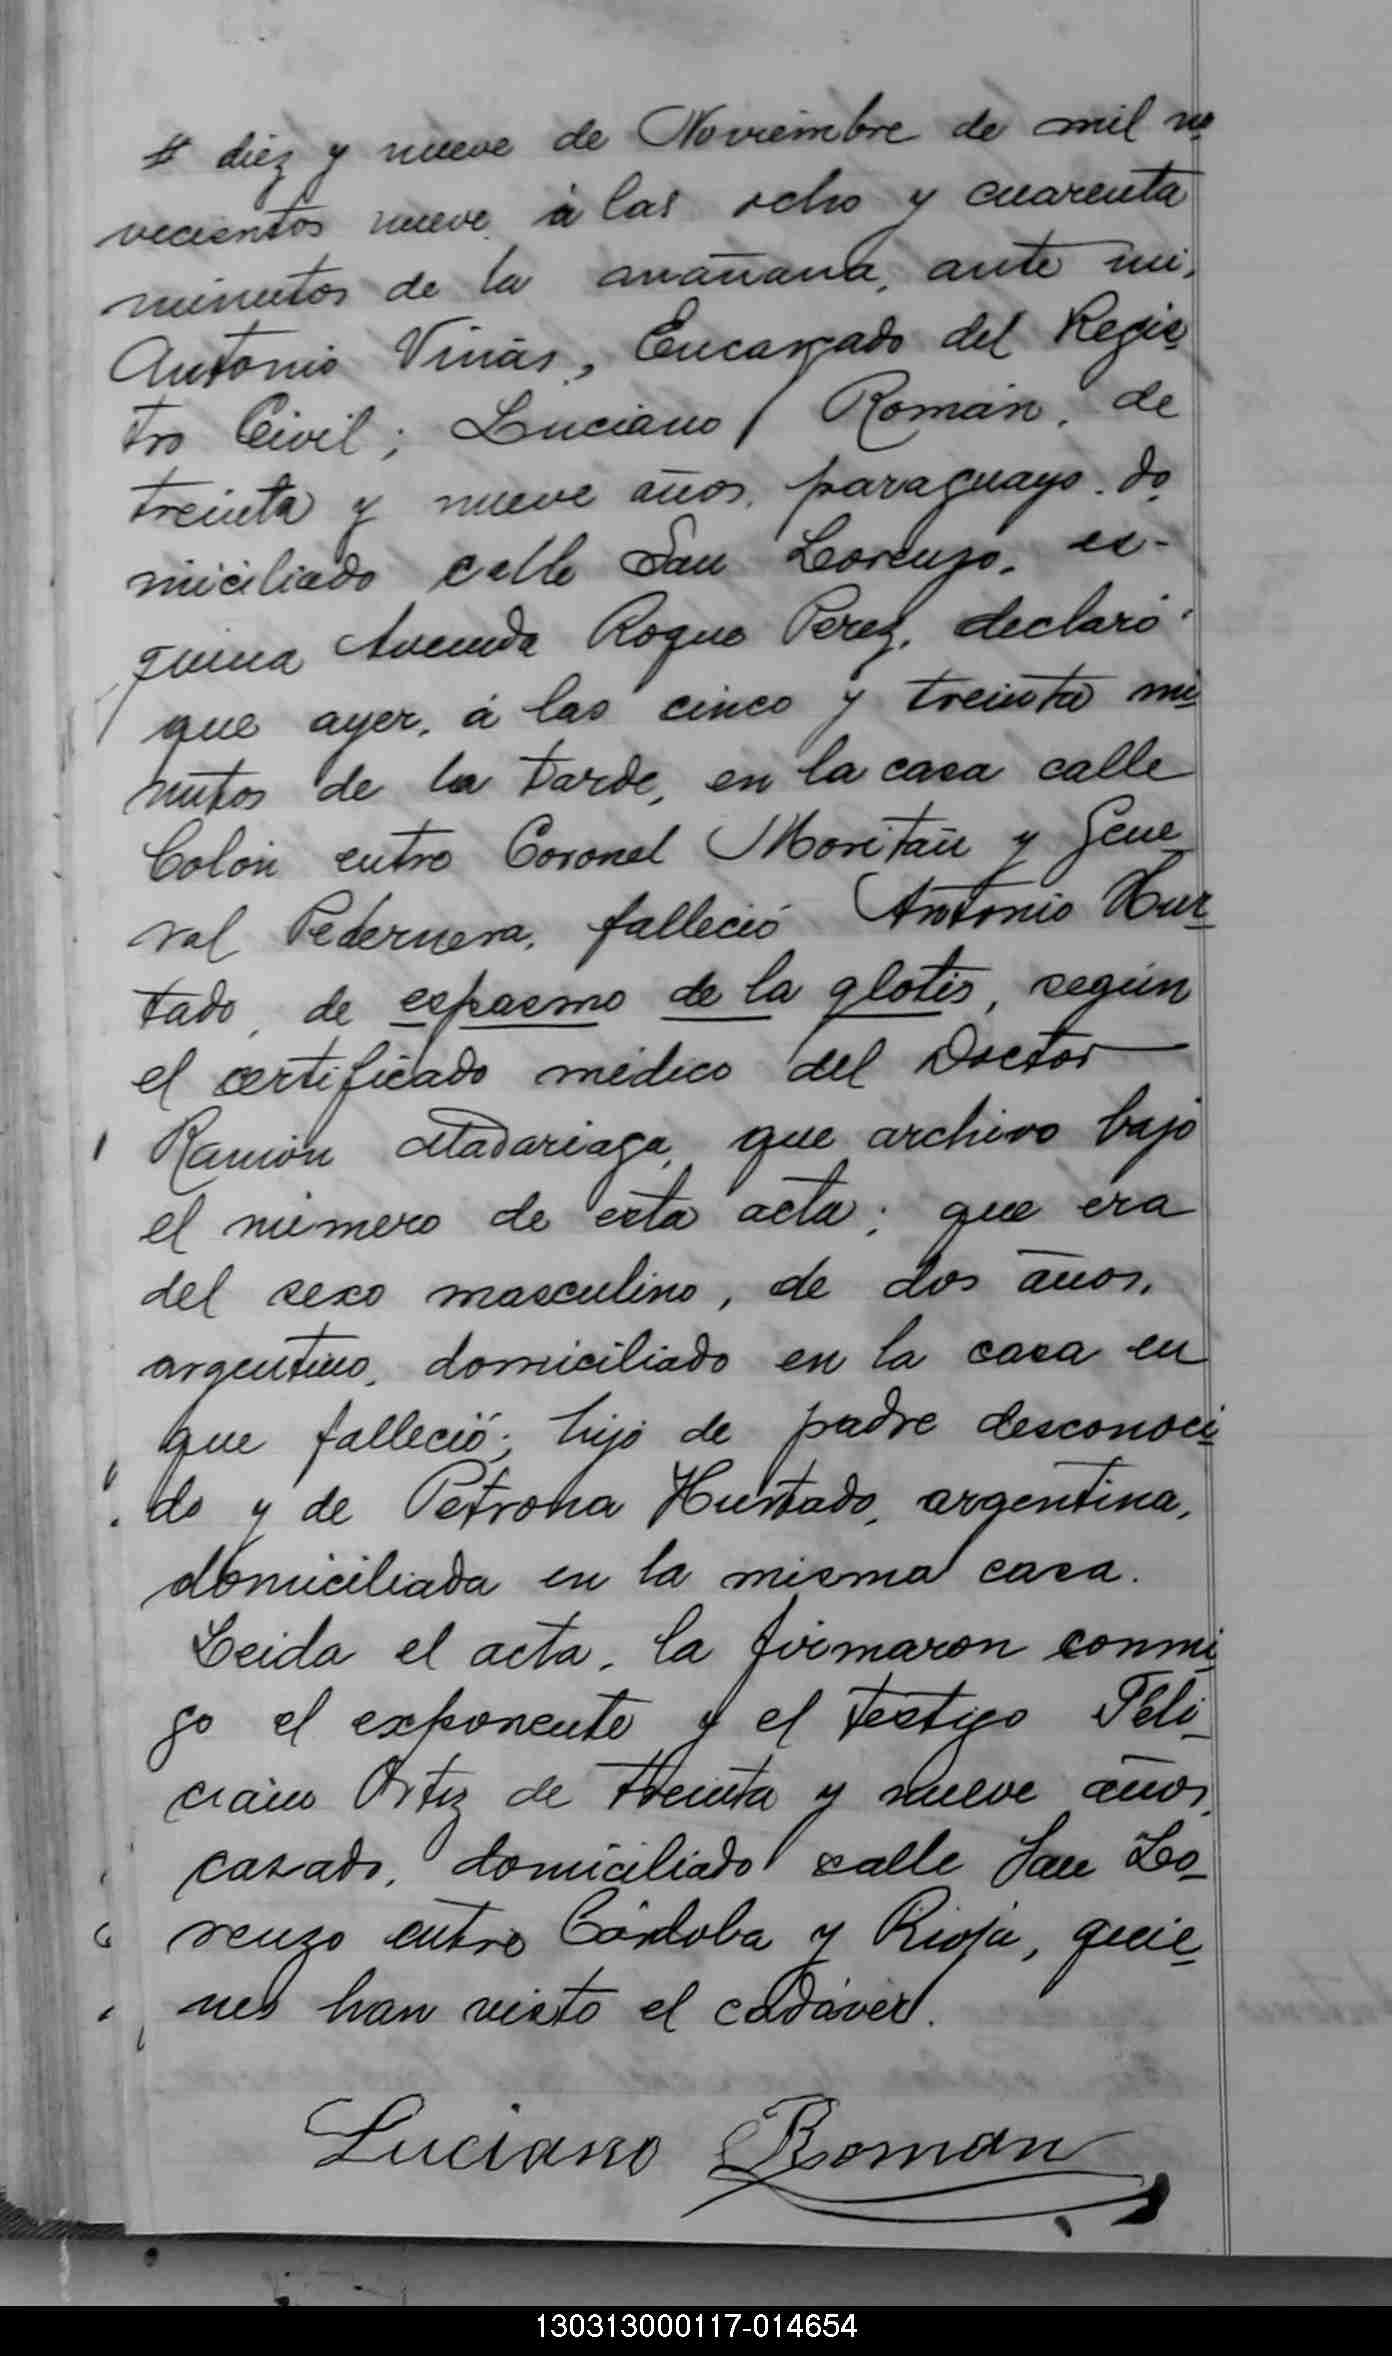 diez y nueve de Noviembre de mil no
vecientos nueve, á las ocho y cuarenta
minutos de la mañana, ante mi,
Antonio Viñas, Encargado del Regis
tro Civil; Luciano Román, de
treinta y nueve años, paraguayo, do
miciliado calle San Lorenzo, es-
quina Avenida Roque Perez, declaró:
que ayer, á las cinco y treinta mi
nutos de la tarde, en la casa calle
Colón entre Coronel Moritán y Gene
ral Pedernera, falleció Antonio Hur
tado, de espasmo de la glotis, según
el certificado médico del Doctor
Ramón Madariaga, que archivo bajo
el número de esta acta; que era
del sexo masculino, de dos años,
argentino, domiciliado en la casa en
que falleció; hijo de padre desconoci
do y de Petrona Hurtado, argentina,
domiciliada en la misma casa.
Leida el acta, la firmaron conmi
go el exponente y el testigo Feli-
ciano Ortiz de treinta y nueve años,
casado, domiciliado calle San Lo-
renzo entre Córdoba y Rioja, quie
nes han visto el cadáver.
Luciano Roman
130313000117-014654